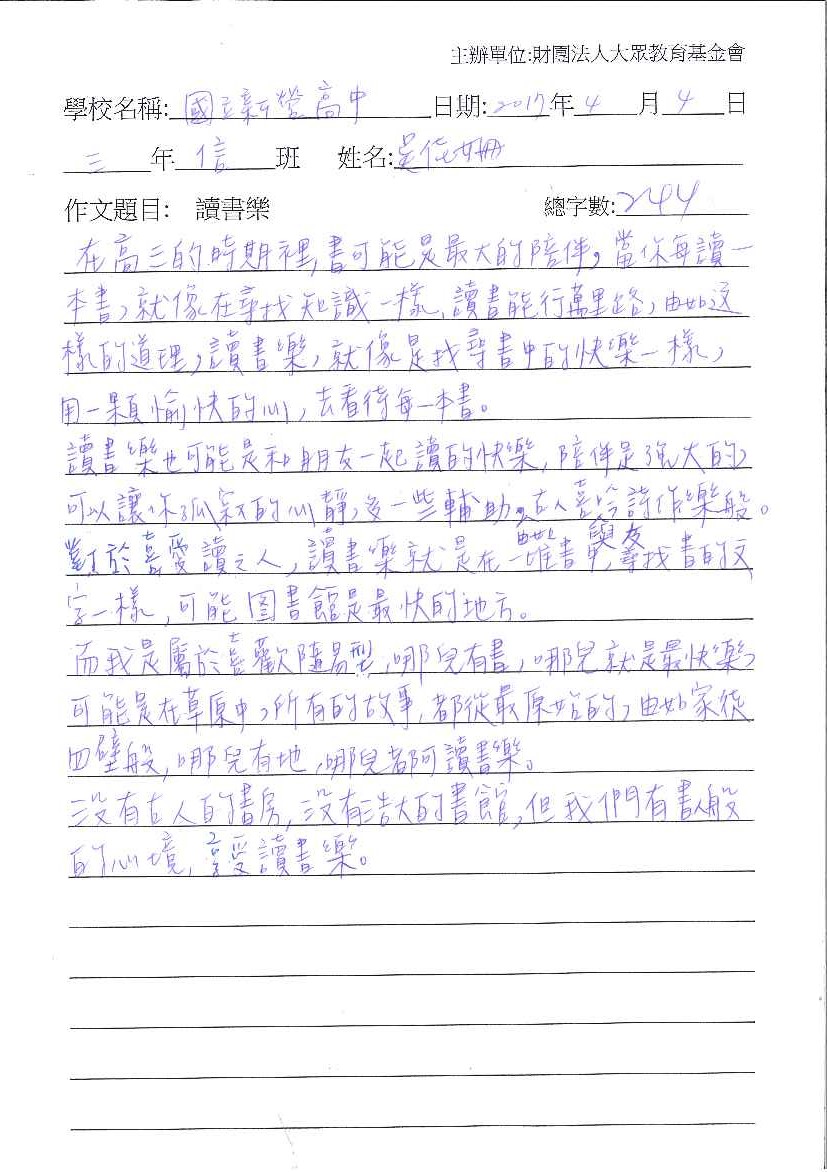 主辦單位:財團法人大眾教育基金會
學校名稱: 國立新營高中 日期: 2017年 4 月 4 日
三 年 信 班 姓名: 吳佳姍
作文題目: 讀書樂 總字數: 244
在高三的時期裡,書可能是最大的陪伴,當你每讀一
本書,就像在尋找知識一樣,讀書能行萬里路,由如這
樣的道理,讀書樂,就像是找尋書中的快樂一樣,
用一顆愉快的心,去看待每一本書。
讀書樂也可能是和朋友一起讀的快樂,陪伴是強大的,
可以讓你孤寂的心靜,多一些輔助,古人喜吟詩作樂般。
對於喜愛讀之人,讀書樂就是在一堆書中,尋找書的文
由如與友
字一樣,可能圖書館是最快的地方。
而我是屬於喜歡隨易型,哪兒有書,哪兒就是最快樂,
可能是在草原中,所有的故事,都從最原始的,由如家徒
四壁般,哪兒有地,哪兒都可讀書樂。
沒有古人的書房,沒有浩大的書館,但我們有書人般
的心境,享受讀書樂。